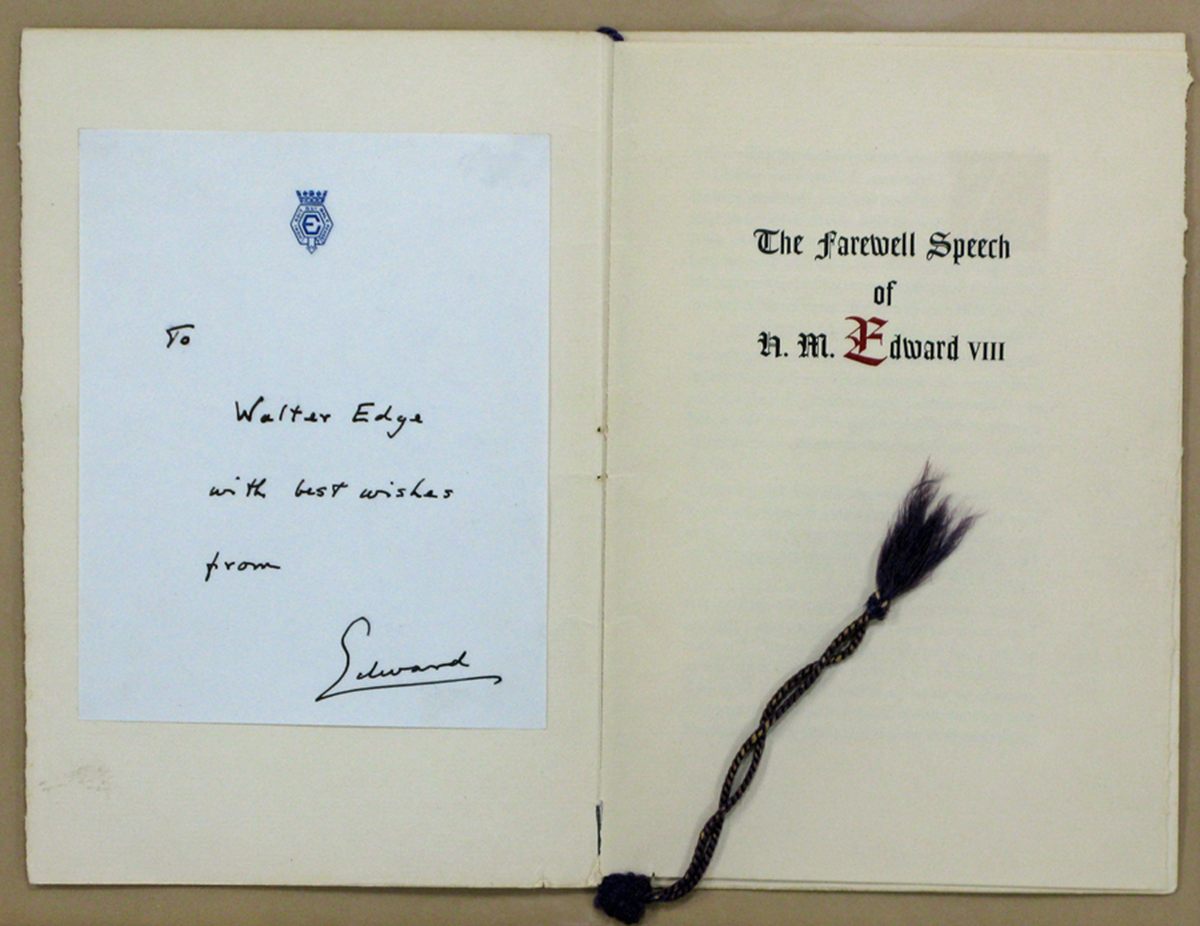 E
To
Walter Edge
with best wishes
from
Edward
The Farewell Speech
of
H. M. Edward VIII